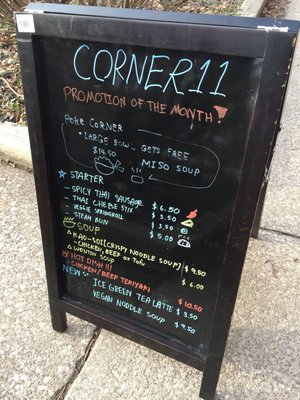 CORNER 11
PROMOTION OF THE MONTH!
POKE CORNER
• LARGE BOWL GETS FREE
$14.50 MISO SOUP
STARTER
- SPICY THAI SAUSAGE $6.50
- THAI CHEESE STIX $3.50
- VEGGIE SPRINGROLL $3.50
- STEAM BUN $9.00
SOUP
KAO-SOI (CRISPY NOODLE SOUP) $9.50
- CHICKEN, BEEF OR TOFU
WONTON SOUP $6.00
HOT DISH!!!
- CHICKEN/BEEF TERIYAKI $10.50
NEW
ICE GREEN TEA LATTE $3.50
VEGAN NOODLE SOUP $9.50